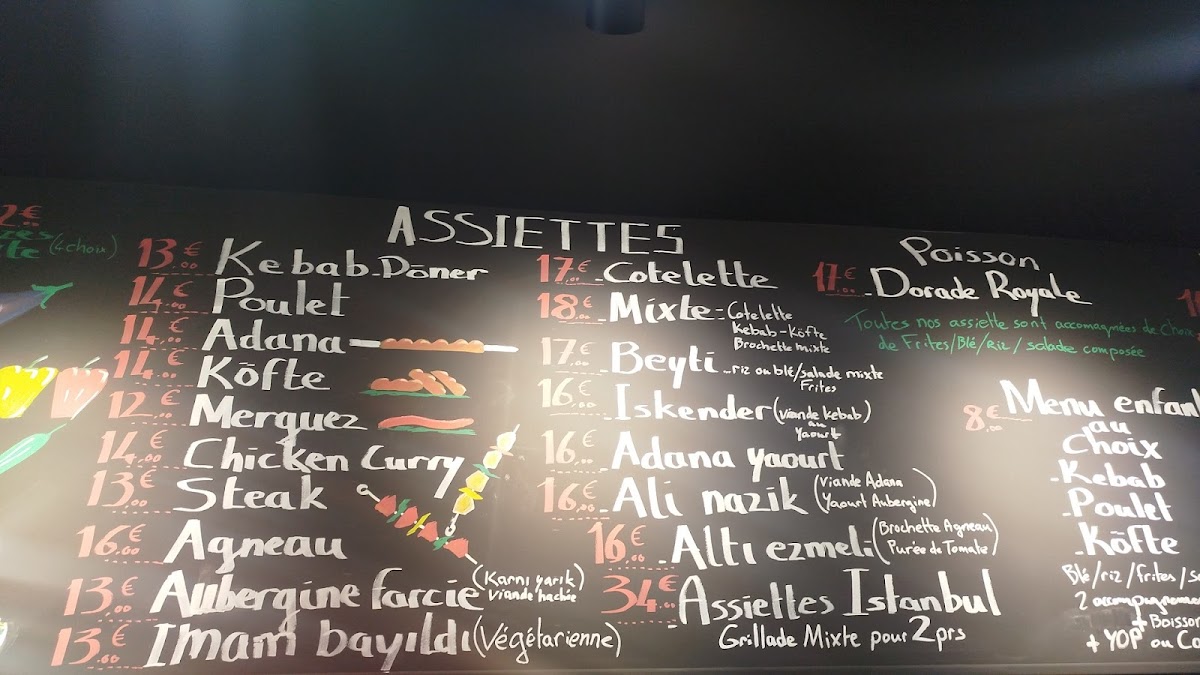 2€
(4 choix)
ASSIETTES
13.00€ Kebab-Döner
14.00€ Poulet
14.00€ Adana
14.00€ Köfte
12.00€ Merguez
14.00€ Chicken Curry
13.00€ Steak
16.00€ Agneau
13.00€ Aubergine farcie (Karnı yarık)
viande hachée
13.00€ Imam bayıldı (Végétarienne)
17.00€ Cotelette
18.00€ Mixte - Cotelette
Kebab - Köfte
Brochette mixte
17.00€ Beyti - riz ou blé/salade mixte
Frites
16.00€ Iskender (viande kebab)
au
Yaourt
16.00€ Adana yaourt
16.00€ Ali nazik (Viande Adana
Yaourt Aubergine)
16.00€ Altı ezmeli (Brochette Agneau
Purée de Tomate)
34.00€ Assiettes Istanbul
Grillade Mixte pour 2 prs
Poisson
17.00€ Dorade Royale
Toutes nos assiette sont accomagnées de choix
de Frites/Blé/Riz/salade composée
8.00€ Menu enfant
au
Choix
- Kebab
- Poulet
- Köfte
Blé/riz/frites/
2
+ Boisson
+ YOP ou